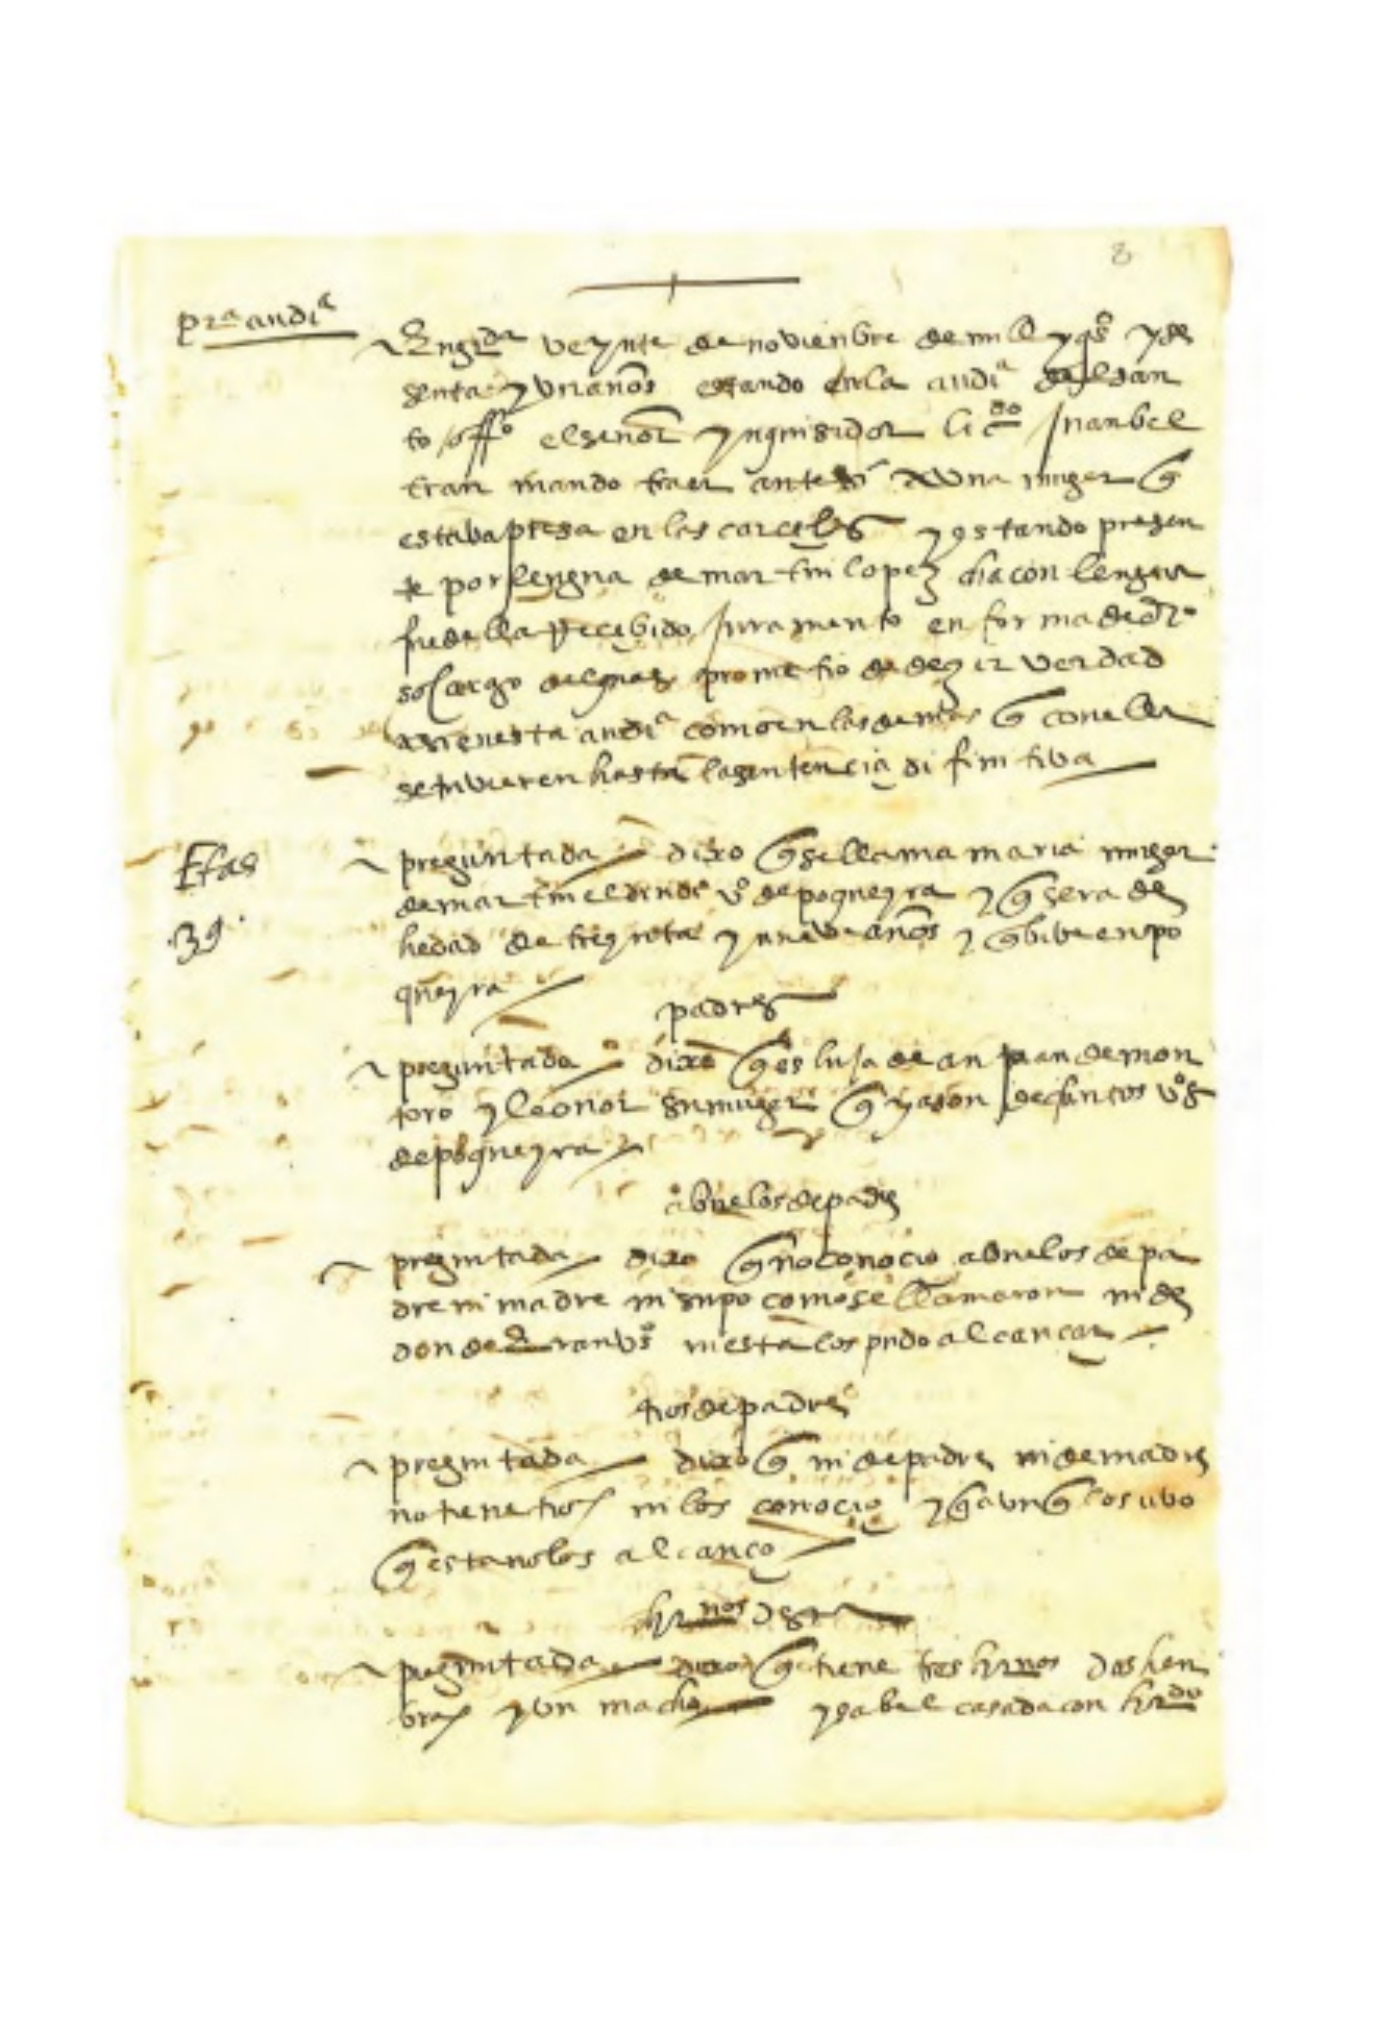 8
pra audia
En grda veynte de novienbre de mill y qs y se
senta y un años estando en la audia del san
to offo el señor ynquisidor licdo Juan bel
tran mando traer ante si a una muger q
estaba presa en las carceles y estando presen
te por lengua de martin lopez lengua
fue della Recebido Juramento en forma de dro
so cargo del qual prometio de dezir verdad
asi en esta audia como en las demas q con ella
se tuvieren hasta la sentencia difinitiva
preguntada dixo q se llama maria muger
39
de martin vo de poqueyra y q sera de
hedad de treynta y nueve años y q bibe en po
queyra
padres
preguntada dixo q es hija de Juan de mon
toro y leonor su muger q ya son defuntos vos
de poqueyra
abuelos de padre
preguntada dixo q no conocio abuelos de pa
dre ni madre ni supo como se llamaron ni de
donde Eran vos ni esta los pudo alcançar
tios de padre
preguntada dixo q ni de padre ni de madre
no tiene tios ni los conocio y q aunq los uvo
q esta no los alcanço
hrnos desta
preguntada dixo q tiene tres hrnos dos hen
bras y un macho ysabel casada con hrdo